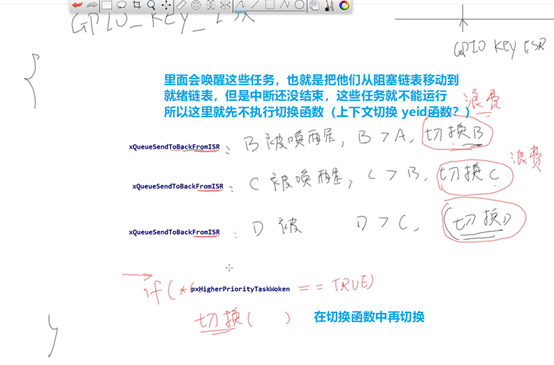 GPIO_KEY_ISR
GPIO KEY ISR
{
里面会唤醒这些任务，也就是把他们从阻塞链表移动到
就绪链表，但是中断还没结束，这些任务就不能运行
所以这里就先不执行切换函数（上下文切换 yeid函数？）
浪费
xQueueSendToBackFromISR : B被唤醒, B > A, 切换B
浪费
xQueueSendToBackFromISR : C被唤醒, C > B, 切换C
xQueueSendToBackFromISR : D被 D > C, (切换D
if (* pxHigherPriorityTaskWoken == TRUE)
切换( ) 在切换函数中再切换
}